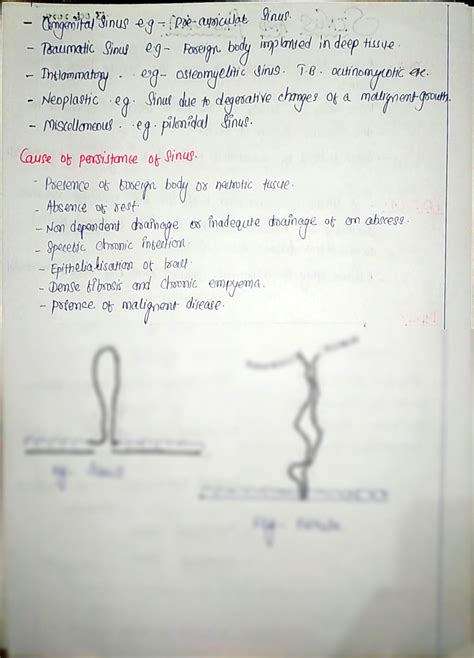 - Congenital Sinus eg - Pre-auricular Sinus.
- Traumatic Sinus eg - Foreign body implanted in deep tissue.
- Inflammatory . eg - osteomyelitic sinus. T.B. actinomycotic etc.
- Neoplastic . eg. Sinus due to degerative changes of a malignent growth.
- Miscellaneous . eg. pilonidal Sinus.
Cause of persistance of Sinus.
- Presence of foreign body or necrotic tissue.
- Absence of rest.
- Non dependent drainage or inadequte drainage of an abscess.
- Specific chronic infection.
- Epithelialisation of tract.
- Dense fibrosis and chronic empyema.
- presence of malignent disease.
fig - Sinus
Fig - Fistula